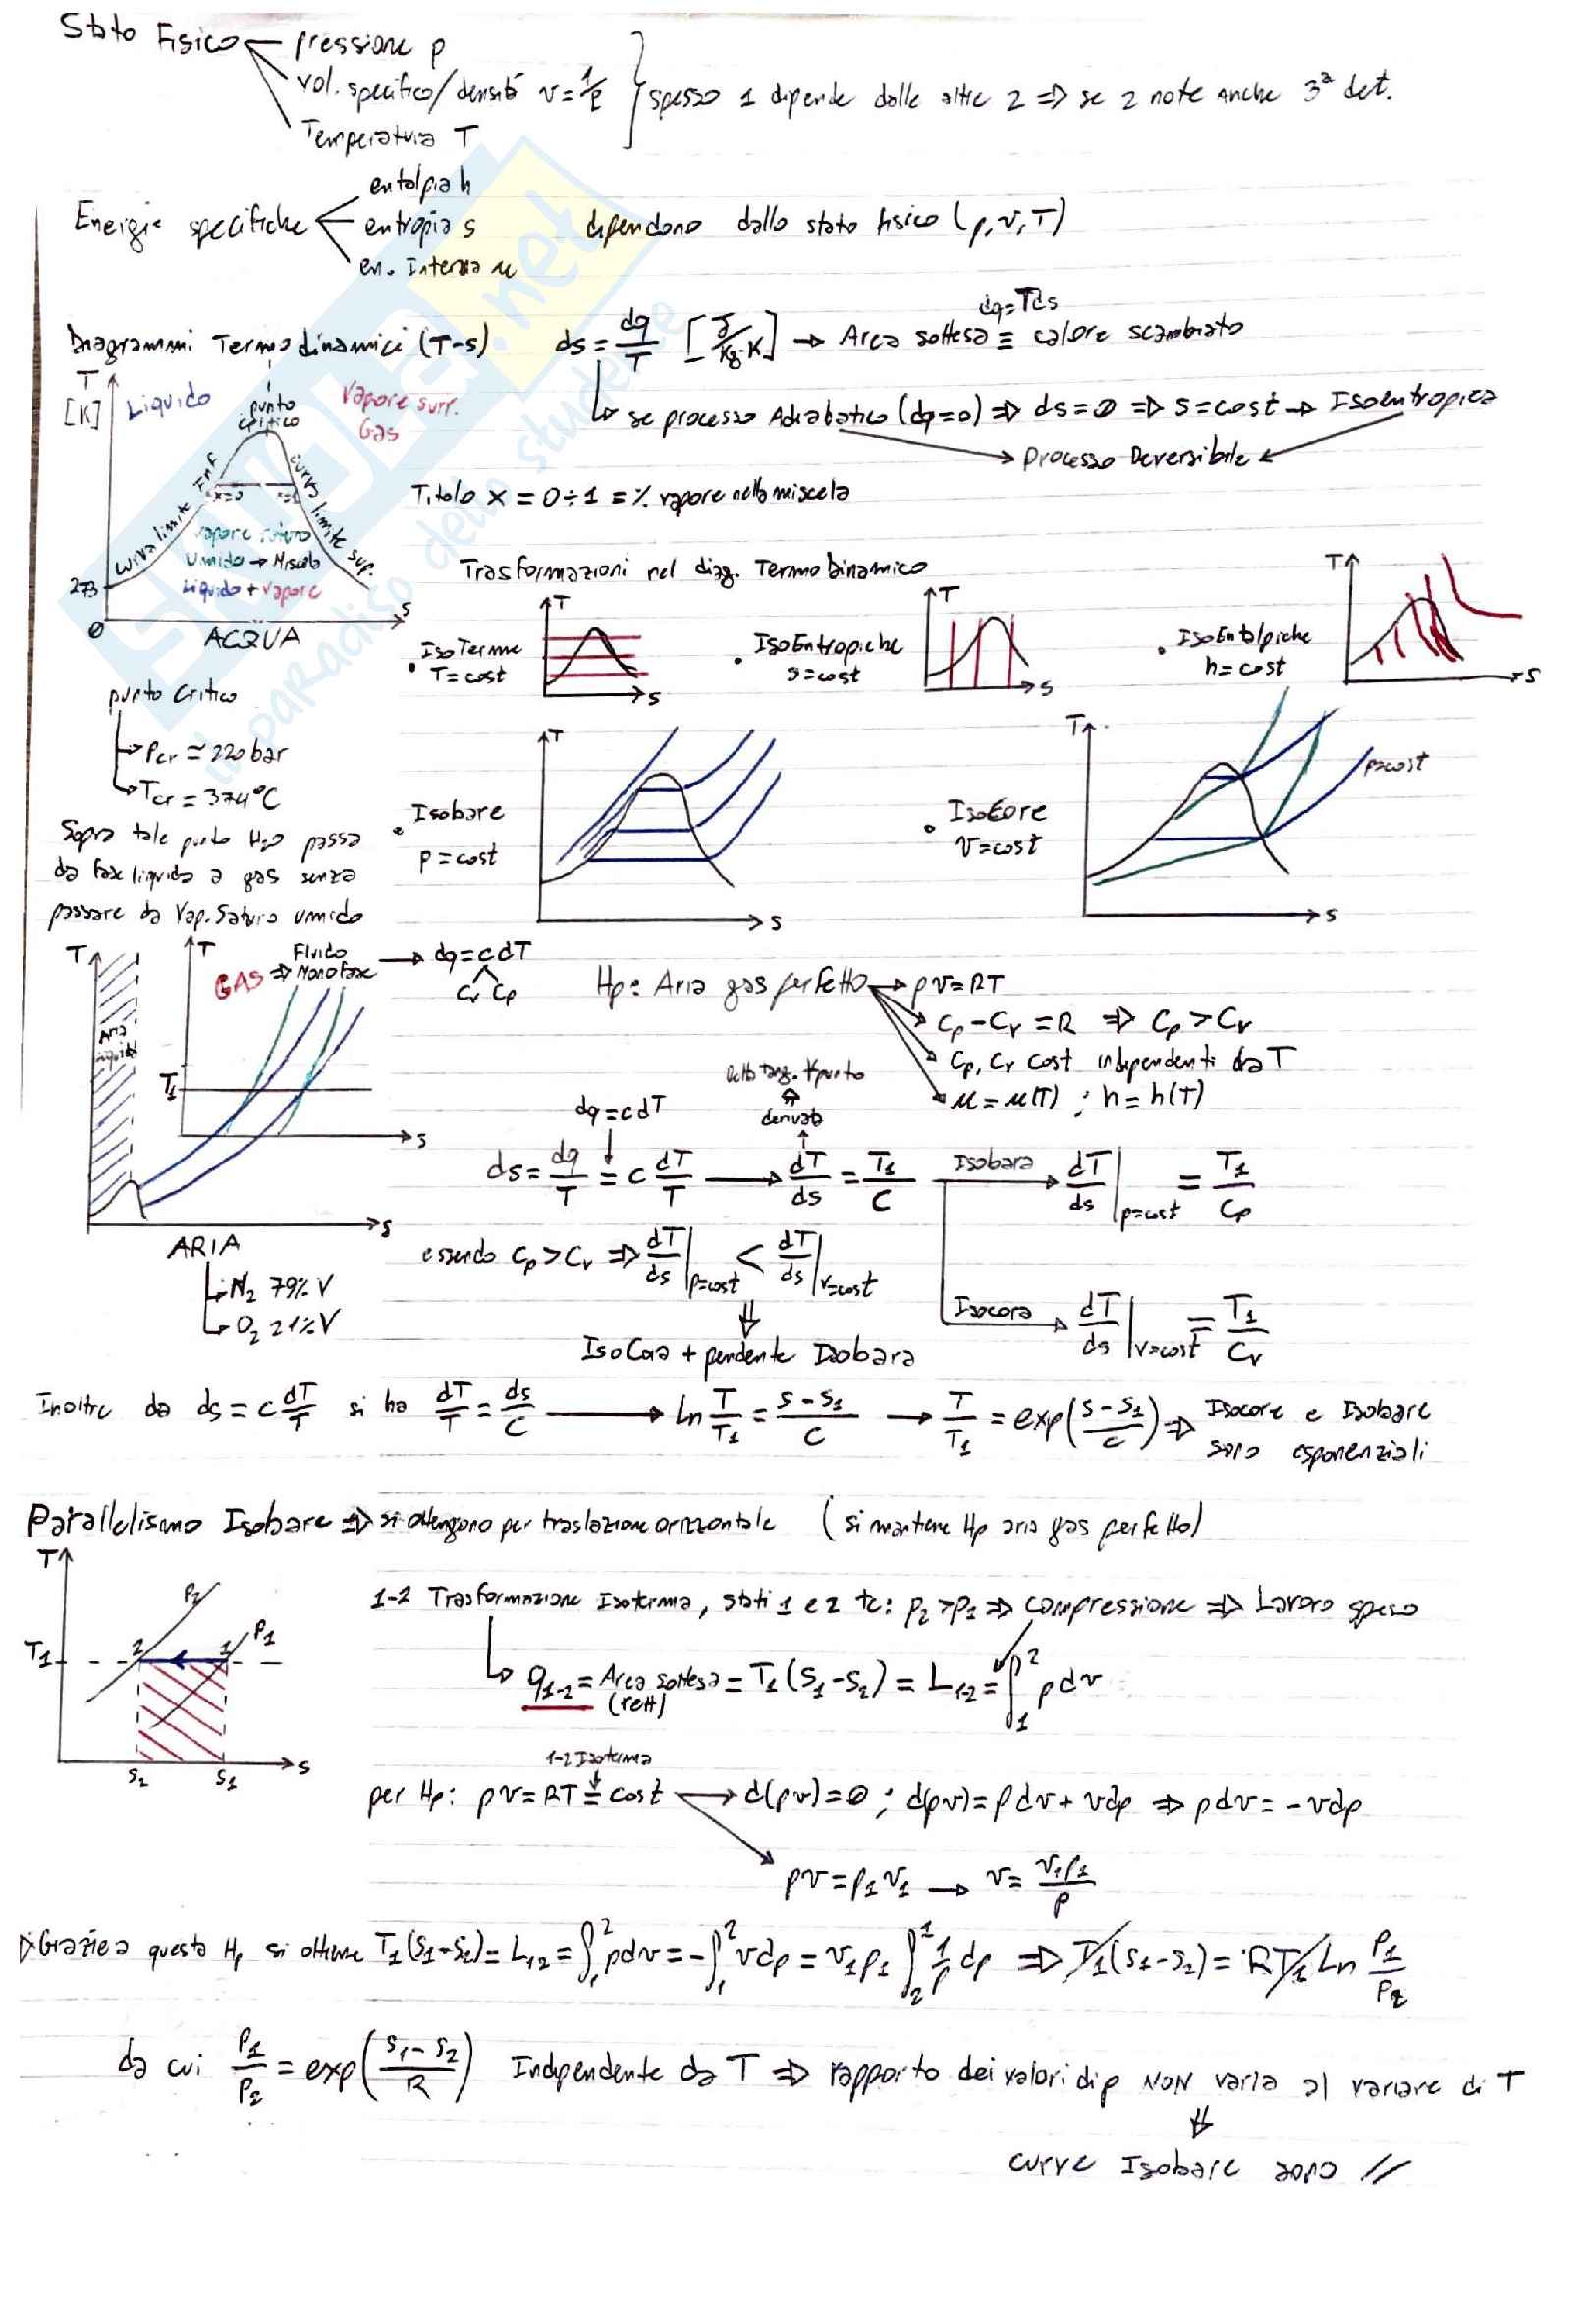 Stato Fisico
pressione p
vol. specifico/densità v=1/ρ
Temperatura T
spesso 1 dipende dalle altre 2 ⇒ se 2 note anche 3ª det.
Energie specifiche
entalpia h
entropia s
en. Interna u
dipendono dallo stato fisico (p,v,T)
Diagrammi Termodinamici (T-s)
ds = dq/T [J/kg·K] → Area sottesa ≡ calore scambiato
dq=Tds
se processo Adiabatico (dq=0) ⇒ ds=0 ⇒ s=cost → Isoentropica
Processo Reversibile
Titolo x = 0÷1 = % vapore nella miscela
T
[K]
Liquido
punto
critico
Vapore surr.
Gas
curva limite Inf
x=0
x=1
curva limite sup.
vapore saturo
Umido → Miscela
Liquido + vapore
273
0
s
ACQUA
punto critico
Pcr ≃ 220 bar
Tcr = 374°C
Sopra tale punto H2O passa
da fase liquida a gas senza
passare da Vap. Saturo umido
Trasformazioni nel diag. TermoDinamico
• IsoTerme
T=cost
T
s
• IsoEntropiche
s=cost
T
s
• IsoEntalpiche
h=cost
T
s
• Isobare
p=cost
T
s
• IsoCore
v=cost
T
p=cost
s
T
Aria
liquida
T
GAS ⇒ Fluido
Monofase
→ dq=cdT
cv cp
T1
s
s
ARIA
N2 79% V
O2 21% V
Hp: Aria gas perfetto → pv=RT
cp-cv=R ⇒ cp>cv
cp, cv cost indipendenti da T
u=u(T) ; h=h(T)
della tang. ∀punto
derivata
dq=cdT
ds = dq/T = c dT/T → dT/ds = T1/c
Isobara dT/ds|p=cost = T1/cp
essendo cp>cv ⇒ dT/ds|p=cost < dT/ds|v=cost
Isocora dT/ds|v=cost = T1/cv
IsoCora + pendente Isobara
Inoltre da ds = c dT/T si ha dT/T = ds/c → ln T/T1 = (s-s1)/c → T/T1 = exp((s-s1)/c) ⇒ Isocore e Isobare
sono esponenziali
Parallelismo Isobare ⇒ si ottengono per traslazione orizzontale (si mantiene Hp aria gas perfetto)
T
P2
P1
T1
2
1
s2
s1
s
1-2 Trasformazione Isoterma, stati 1 e 2 tc: p2>p1 ⇒ compressione ⇒ Lavoro speso
q1-2 = Area sottesa = T1(s1-s2) = L1-2 = ∫₁² pdv
(rett)
1-2 Isoterma
per Hp: pv=RT=cost → d(pv)=0 ; d(pv)=pdv+vdp ⇒ pdv=-vdp
pv=p1v1 → v= v1p1/p
Grazie a questa Hp si ottiene T1(s1-s2)=L1-2=∫₁² pdv=-∫₁² vdp=v1p1∫₂¹ 1/p dp ⇒ T1(s1-s2)=RT1 Ln P1/P2
da cui P1/P2 = exp((s1-s2)/R) Indipendente da T ⇒ rapporto dei valori di p NON varia al variare di T
curve Isobare sono //